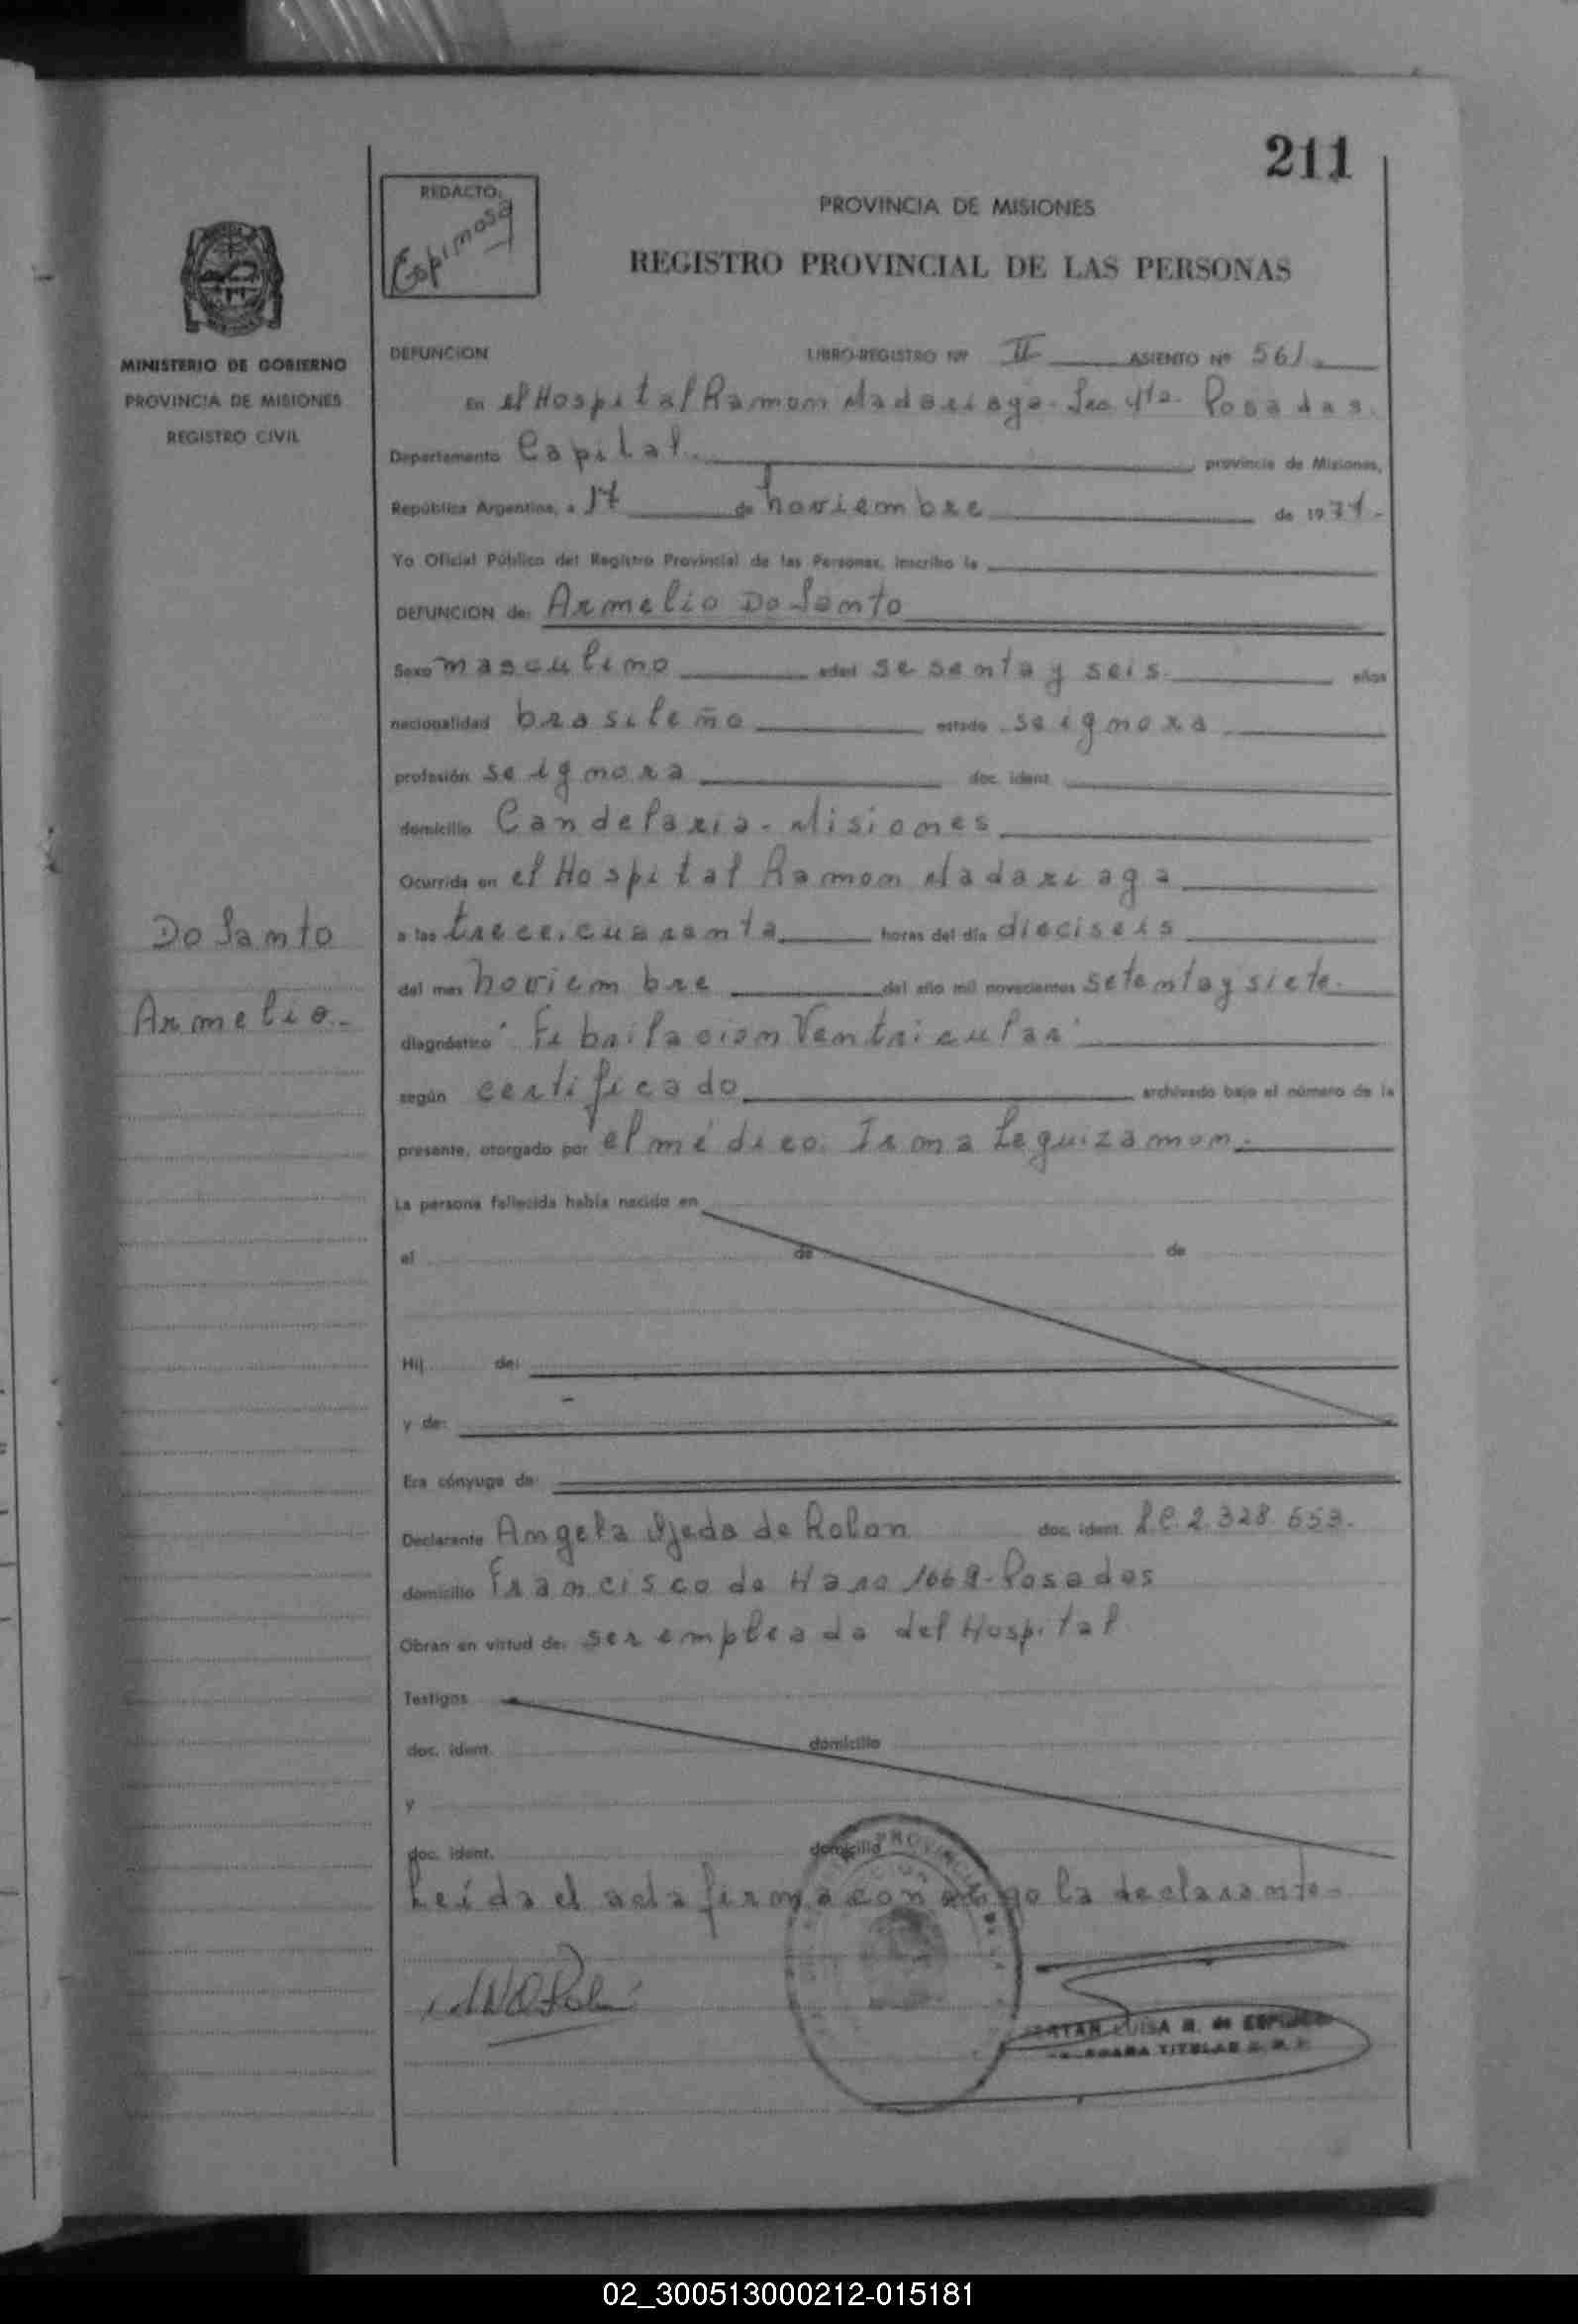 211
REDACTO:
Espinosa
PROVINCIA DE MISIONES
REGISTRO PROVINCIAL DE LAS PERSONAS
MINISTERIO DE GOBIERNO
PROVINCIA DE MISIONES
REGISTRO CIVIL
DEFUNCION LIBRO-REGISTRO Nº II ASIENTO Nº 561
En el Hospital Ramon Madariaga - Sec. 4ta. Posadas.
Departamento Capital. provincia de Misiones,
República Argentina, a 17 de noviembre de 1977.-
Yo Oficial Público del Registro Provincial de las Personas, inscribo la
DEFUNCION de: Armelio Do Santo
Sexo masculino edad sesenta y seis años
nacionalidad brasileño estado se ignora
profesión se ignora doc. ident.
domicilio Candelaria - Misiones
Ocurrida en el Hospital Ramon Madariaga
a las trece, cuarenta horas del día dieciseis
del mes noviembre del año mil novecientos setenta y siete.
diagnóstico "Fibrilacion Ventricular"
según certificado archivado bajo el número de la
presente, otorgado por el médico. Irma Leguizamon.
Do Santo
Armelio.-
La persona fallecida había nacido en
el de de
Hij de:
y de:
Era cónyuge de:
Declarante Angela Ojeda de Rolon doc. ident. L.C. 2.328.653.
domicilio Francisco de Haro 1669 - Posadas
Obran en virtud de: ser empleada del Hospital
Testigos
doc. ident. domicilio
y
doc. ident. domicilio
Leída el acta firma conmigo la declarante.-
PROVINCIAL
LUISA R. de
TITULAR
02_300513000212-015181